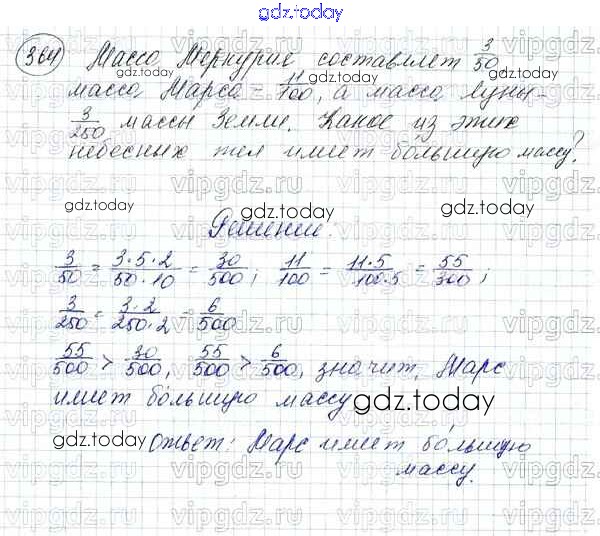 gdz.today
364 Масса Меркурия составляет 3/50
масса Марса - 11/100, а масса Луны -
3/250 массы Земли. Какое из этих
небесных тел имеет большую массу?
gdz.today
gdz.today
gdz.today
gdz.today
Решение:
3/50 = 3·5·2/50·10 = 30/500; 11/100 = 11·5/100·5 = 55/300;
3/250 = 3·2/250·2 = 6/500
55/500 > 30/500, 55/500 > 6/500, значит, Марс
имеет большую массу
gdz.today
gdz.today
Ответ: Марс имеет большую
массу.
vipgdz.ru